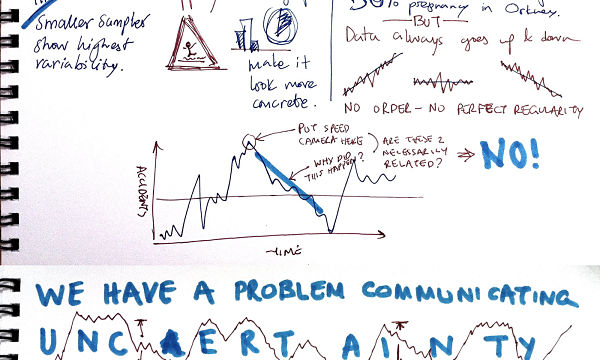 Smaller samples
show highest
variability.
make it
look more
concrete.
pregnancy in Orkney.
BUT
Data always goes up & down
NO ORDER - NO PERFECT REGULARITY
ACCIDENTS
PUT SPEED
CAMERA HERE
WHY DID
THIS HAPPEN?
ARE THESE 2
NECESSARILY
RELATED?
⇒ NO!
TIME
WE HAVE A PROBLEM COMMUNICATING
UNCERTAINTY